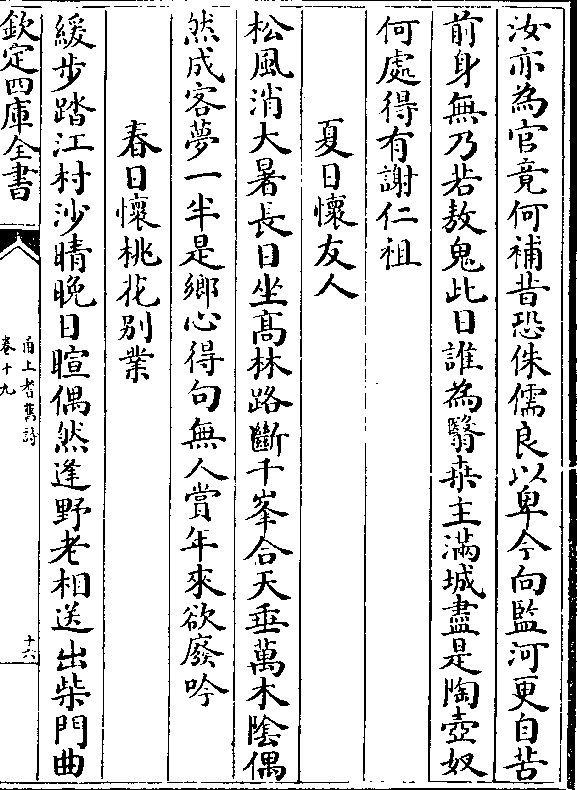 汝亦為官竟何補昔恐侏儒良以卑今向監河更自苦
前身無乃若敖鬼此日誰為翳桑主滿城盡是陶壺奴
何處得有謝仁祖
夏日懷友人
松風消大暑長日坐高林路斷千峯合天垂萬木陰偶
然成客夢一半是鄉心得句無人賞年來欲廢吟
春日懷桃花别業
緩步踏江村沙晴晚日暄偶然逢野老相送出柴門曲
欽定四庫全書
甬上耆舊詩
卷十九
十六